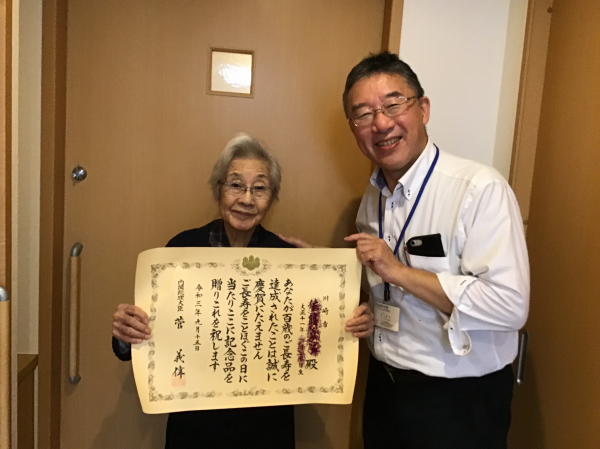 川崎市
殿
大正十一年
生
あなたが百歳のご長寿を
達成されたことは誠に
慶賀にたえません
ご長寿をことほぐこの日に
当たりここに記念品を
贈りこれを祝します
令和三年九月十五日
内閣総理大臣 菅 義偉